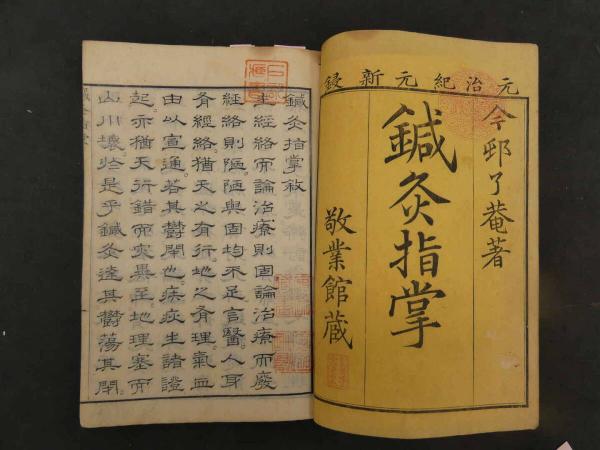 元治紀元新鋟
今邨了菴著
鍼灸指掌
敬業館蔵
鍼灸指掌敘
主經絡而論治療則固論治療而廢
經絡則陋陋與固均不足言醫人身
有經絡猶天之有行地之有理氣血
由以宣通若其鬱閉也疾疢生諸證
起亦猶天行錯而災異至地理塞而
山川壞於是乎鍼灸達其鬱蕩其閉。